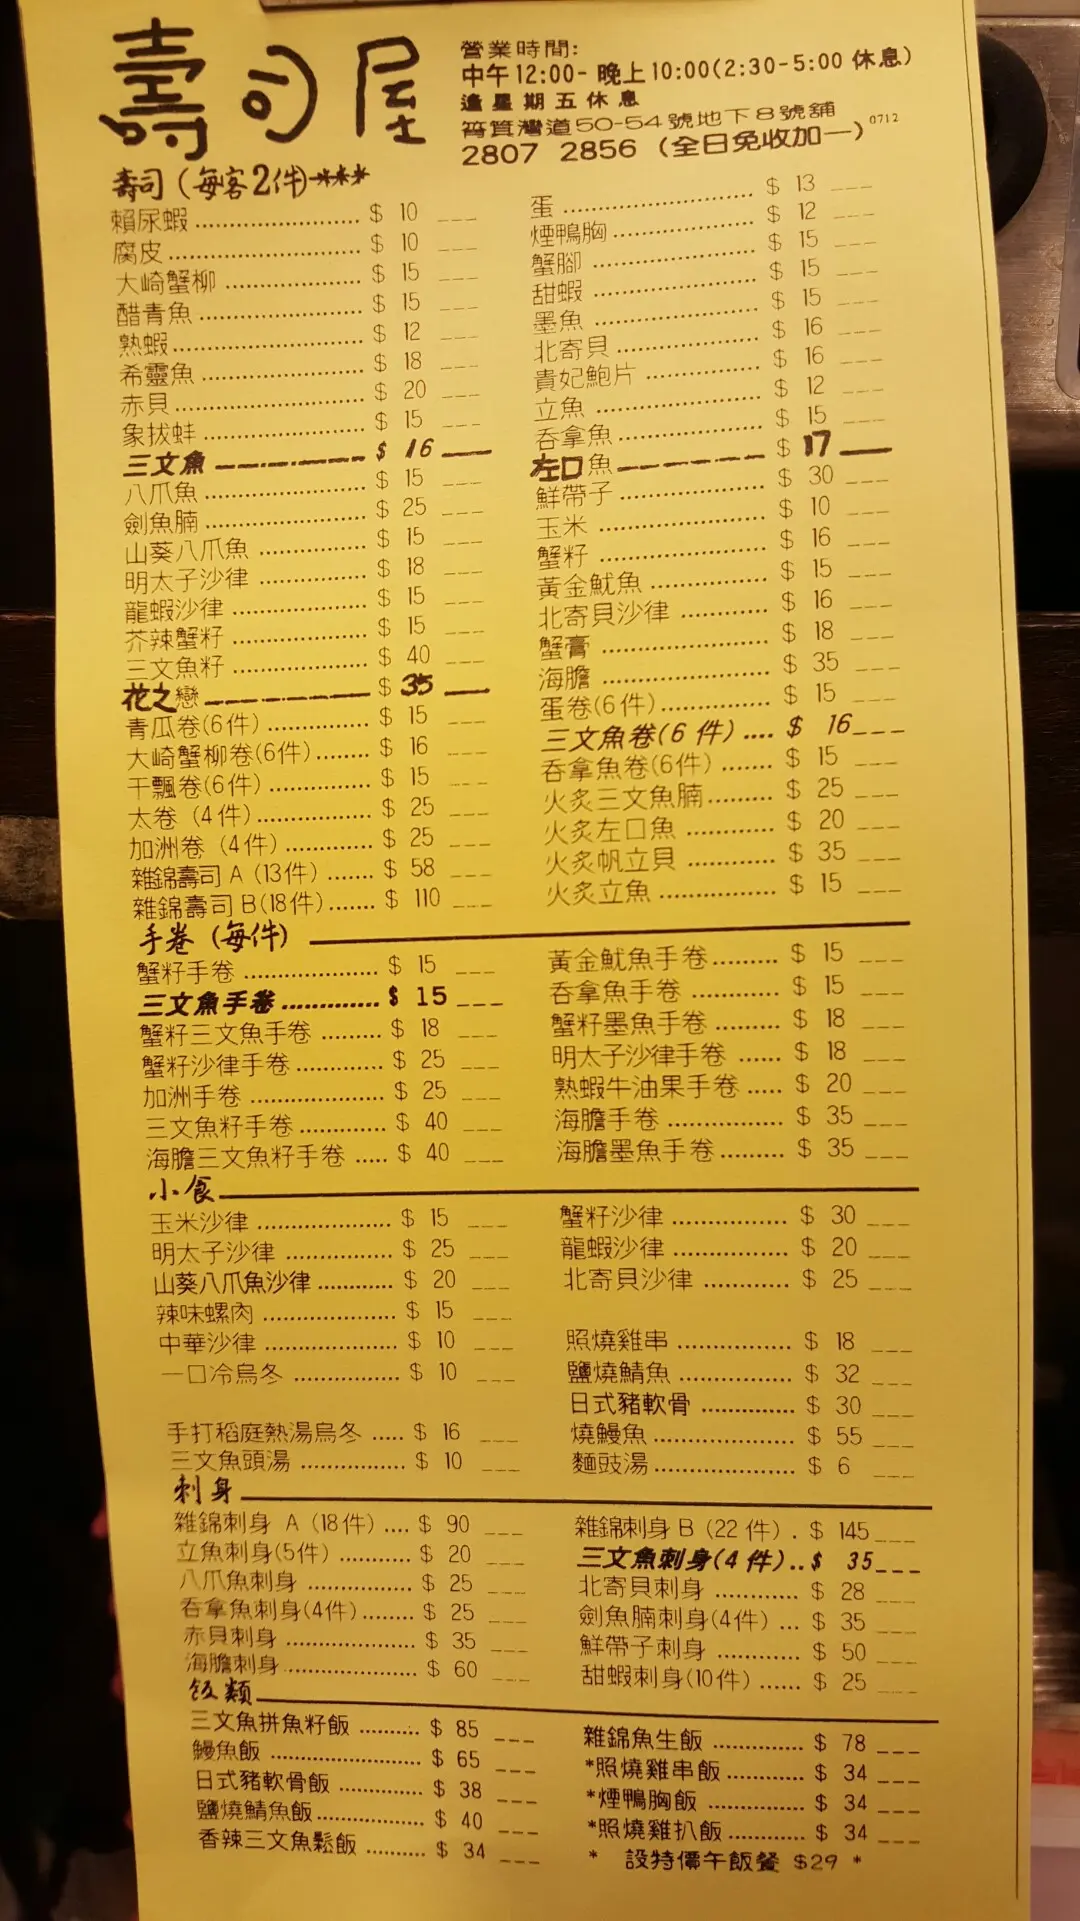 壽司屋
營業時間:
中午12:00-晚上10:00(2:30-5:00 休息)
逢星期五休息
筲箕灣道50-54號地下8號舖
2807 2856 (全日免收加一) 0712
壽司 (每客2件)****
賴尿蝦 $ 10
腐皮 $ 10
大崎蟹柳 $ 15
醋青魚 $ 15
熟蝦 $ 12
希靈魚 $ 18
赤貝 $ 20
象拔蚌 $ 15
三文魚 $ 16
八爪魚 $ 15
劍魚腩 $ 25
山葵八爪魚 $ 15
明太子沙律 $ 18
龍蝦沙律 $ 15
芥辣蟹籽 $ 15
三文魚籽 $ 40
花之戀 $ 35
青瓜卷(6件) $ 15
大崎蟹柳卷(6件) $ 16
干瓢卷(6件) $ 15
太卷 (4件) $ 25
加洲卷 (4件) $ 25
雜錦壽司 A (13件) $ 58
雜錦壽司 B(18件) $ 110
蛋 $ 13
煙鴨胸 $ 12
蟹腳 $ 15
甜蝦 $ 15
墨魚 $ 15
北寄貝 $ 16
貴妃鮑片 $ 16
立魚 $ 12
吞拿魚 $ 15
左口魚 $ 17
鮮帶子 $ 30
玉米 $ 10
蟹籽 $ 16
黃金魷魚 $ 15
北寄貝沙律 $ 16
蟹膏 $ 18
海膽 $ 35
蛋卷(6件) $ 15
三文魚卷(6件) $ 16
吞拿魚卷(6件) $ 15
火炙三文魚腩 $ 25
火炙左口魚 $ 20
火炙帆立貝 $ 35
火炙立魚 $ 15
手卷 (每件)
蟹籽手卷 $ 15
三文魚手卷 $ 15
蟹籽三文魚手卷 $ 18
蟹籽沙律手卷 $ 25
加洲手卷 $ 25
三文魚籽手卷 $ 40
海膽三文魚籽手卷 $ 40
黃金魷魚手卷 $ 15
吞拿魚手卷 $ 15
蟹籽墨魚手卷 $ 18
明太子沙律手卷 $ 18
熟蝦牛油果手卷 $ 20
海膽手卷 $ 35
海膽墨魚手卷 $ 35
小食
玉米沙律 $ 15
明太子沙律 $ 25
山葵八爪魚沙律 $ 20
辣味螺肉 $ 15
中華沙律 $ 10
一口冷烏冬 $ 10
手打稻庭熱湯烏冬 $ 16
三文魚頭湯 $ 10
蟹籽沙律 $ 30
龍蝦沙律 $ 20
北寄貝沙律 $ 25
照燒雞串 $ 18
鹽燒鯖魚 $ 32
日式豬軟骨 $ 30
燒鰻魚 $ 55
麵豉湯 $ 6
刺身
雜錦刺身 A (18件) $ 90
立魚刺身(5件) $ 20
八爪魚刺身 $ 25
吞拿魚刺身(4件) $ 25
赤貝刺身 $ 35
海膽刺身 $ 60
雜錦刺身 B (22件) $ 145
三文魚刺身(4件) $ 35
北寄貝刺身 $ 28
劍魚腩刺身(4件) $ 35
鮮帶子刺身 $ 50
甜蝦刺身(10件) $ 25
飯類
三文魚拼魚籽飯 $ 85
鰻魚飯 $ 65
日式豬軟骨飯 $ 38
鹽燒鯖魚飯 $ 40
香辣三文魚鬆飯 $ 34
雜錦魚生飯 $ 78
*照燒雞串飯 $ 34
*煙鴨胸飯 $ 34
*照燒雞扒飯 $ 34
* 設特價午飯餐 $29 *